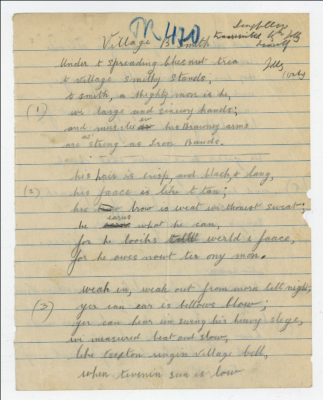 TR 470
Village Blacksmith
July
Under t spreading Chesnut tree
t village Smithy Stands;
t smith, a mighty man is he,
(1) wi large and sinewy hands;
and muscles o his brawny arms
are strong as Iron Bands.
his hair is crisp, and black, & long,
(2) his faace is like t tan;
his brow is weat wi honest sweat;
he earns what he can,
for he looks t world i faace,
for he owes nowt ter ony man.
weak in, weak out from morn till night;
(3) yer can ear is bellows blow;
yer can hear im swing his heavy slege,
wi measured beat and slow,
like sexton ringin village bell,
when t evenin sun is low